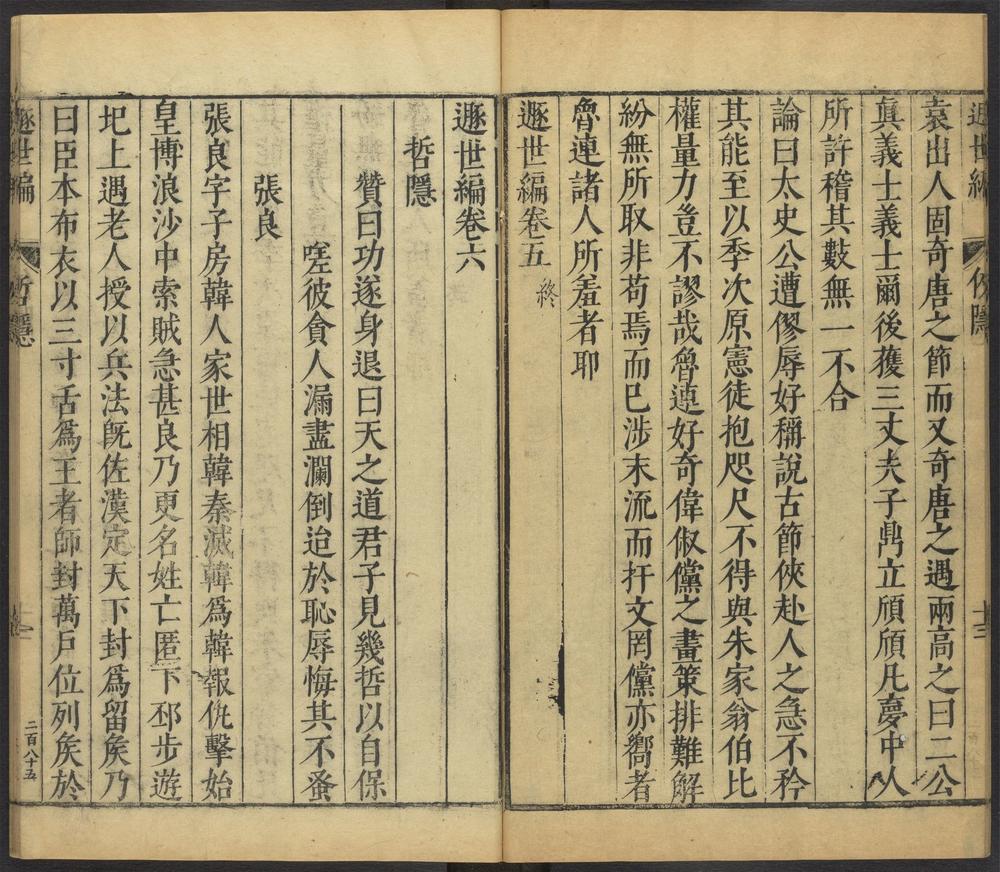 遯世編 俠隱 十三
袁出人固奇唐之節而又奇唐之遇兩高之曰二公
眞義士義士爾後獲三丈夫子鼎立頎頎凡夢中人
所許稽其數無一不合
論曰太史公遭僇辱好稱說古節俠赴人之急不矜
其能至以季次原憲徒抱咫尺不得與朱家翁伯比
權量力豈不謬哉魯連好奇偉俶儻之畫策排難解
紛無所取非苟焉而已涉末流而扞文罔儻亦嚮者
魯連諸人所羞者耶
遯世編卷五 終
遯世編卷六
哲隱
贊曰功遂身退曰天之道君子見幾哲以自保
嗟彼貪人漏盡瀾倒迨於恥辱悔其不蚤
張良
張良字子房韓人家世相韓秦滅韓爲韓報仇擊始
皇博浪沙中索賊急甚良乃更名姓亡匿下邳步遊
圯上遇老人授以兵法旣佐漢定天下封爲留矦乃
曰臣本布衣以三寸舌爲王者師封萬戶位列矦於
遯世編 哲隱 一 二百八十五